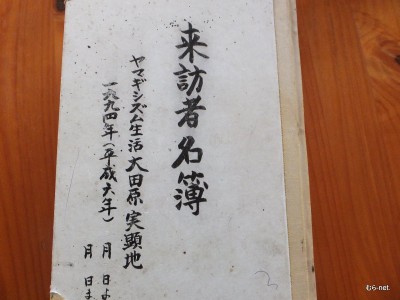 来訪者名簿
ヤマギシズム生活大田原実顕地
一九九四年(平成六年) 月 日よ
月 日ま
む6-net.